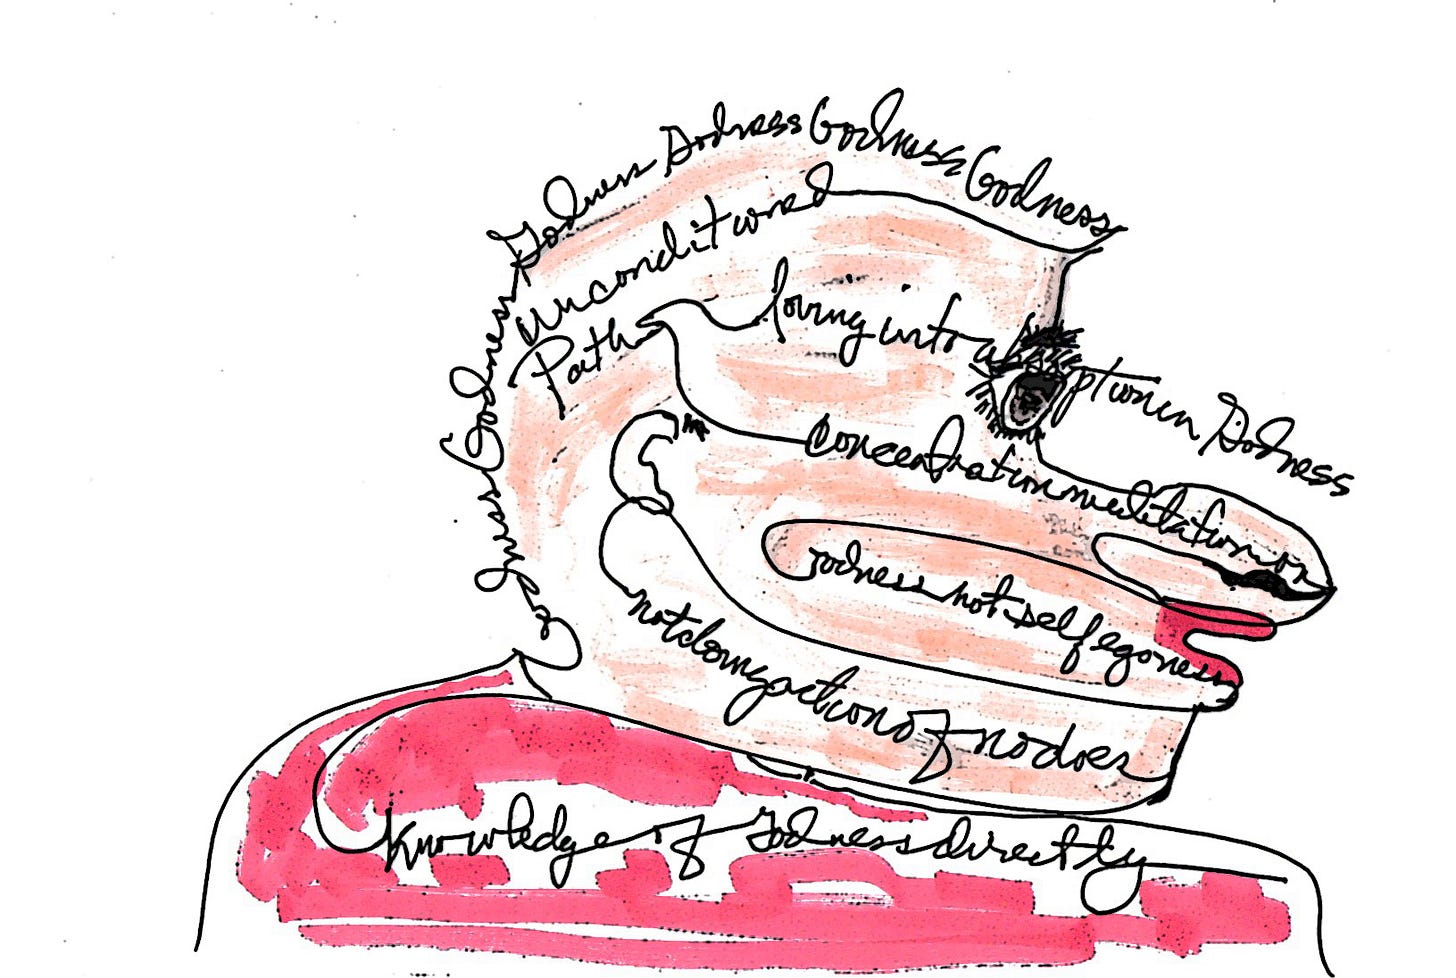 Godness Godness Godness Godness Godness Godness
unconditioned
Path loving into absorption in Godness
Concentration meditation on
Godness not self egoness
not doing action of no doer
Knowledge of Godness directly